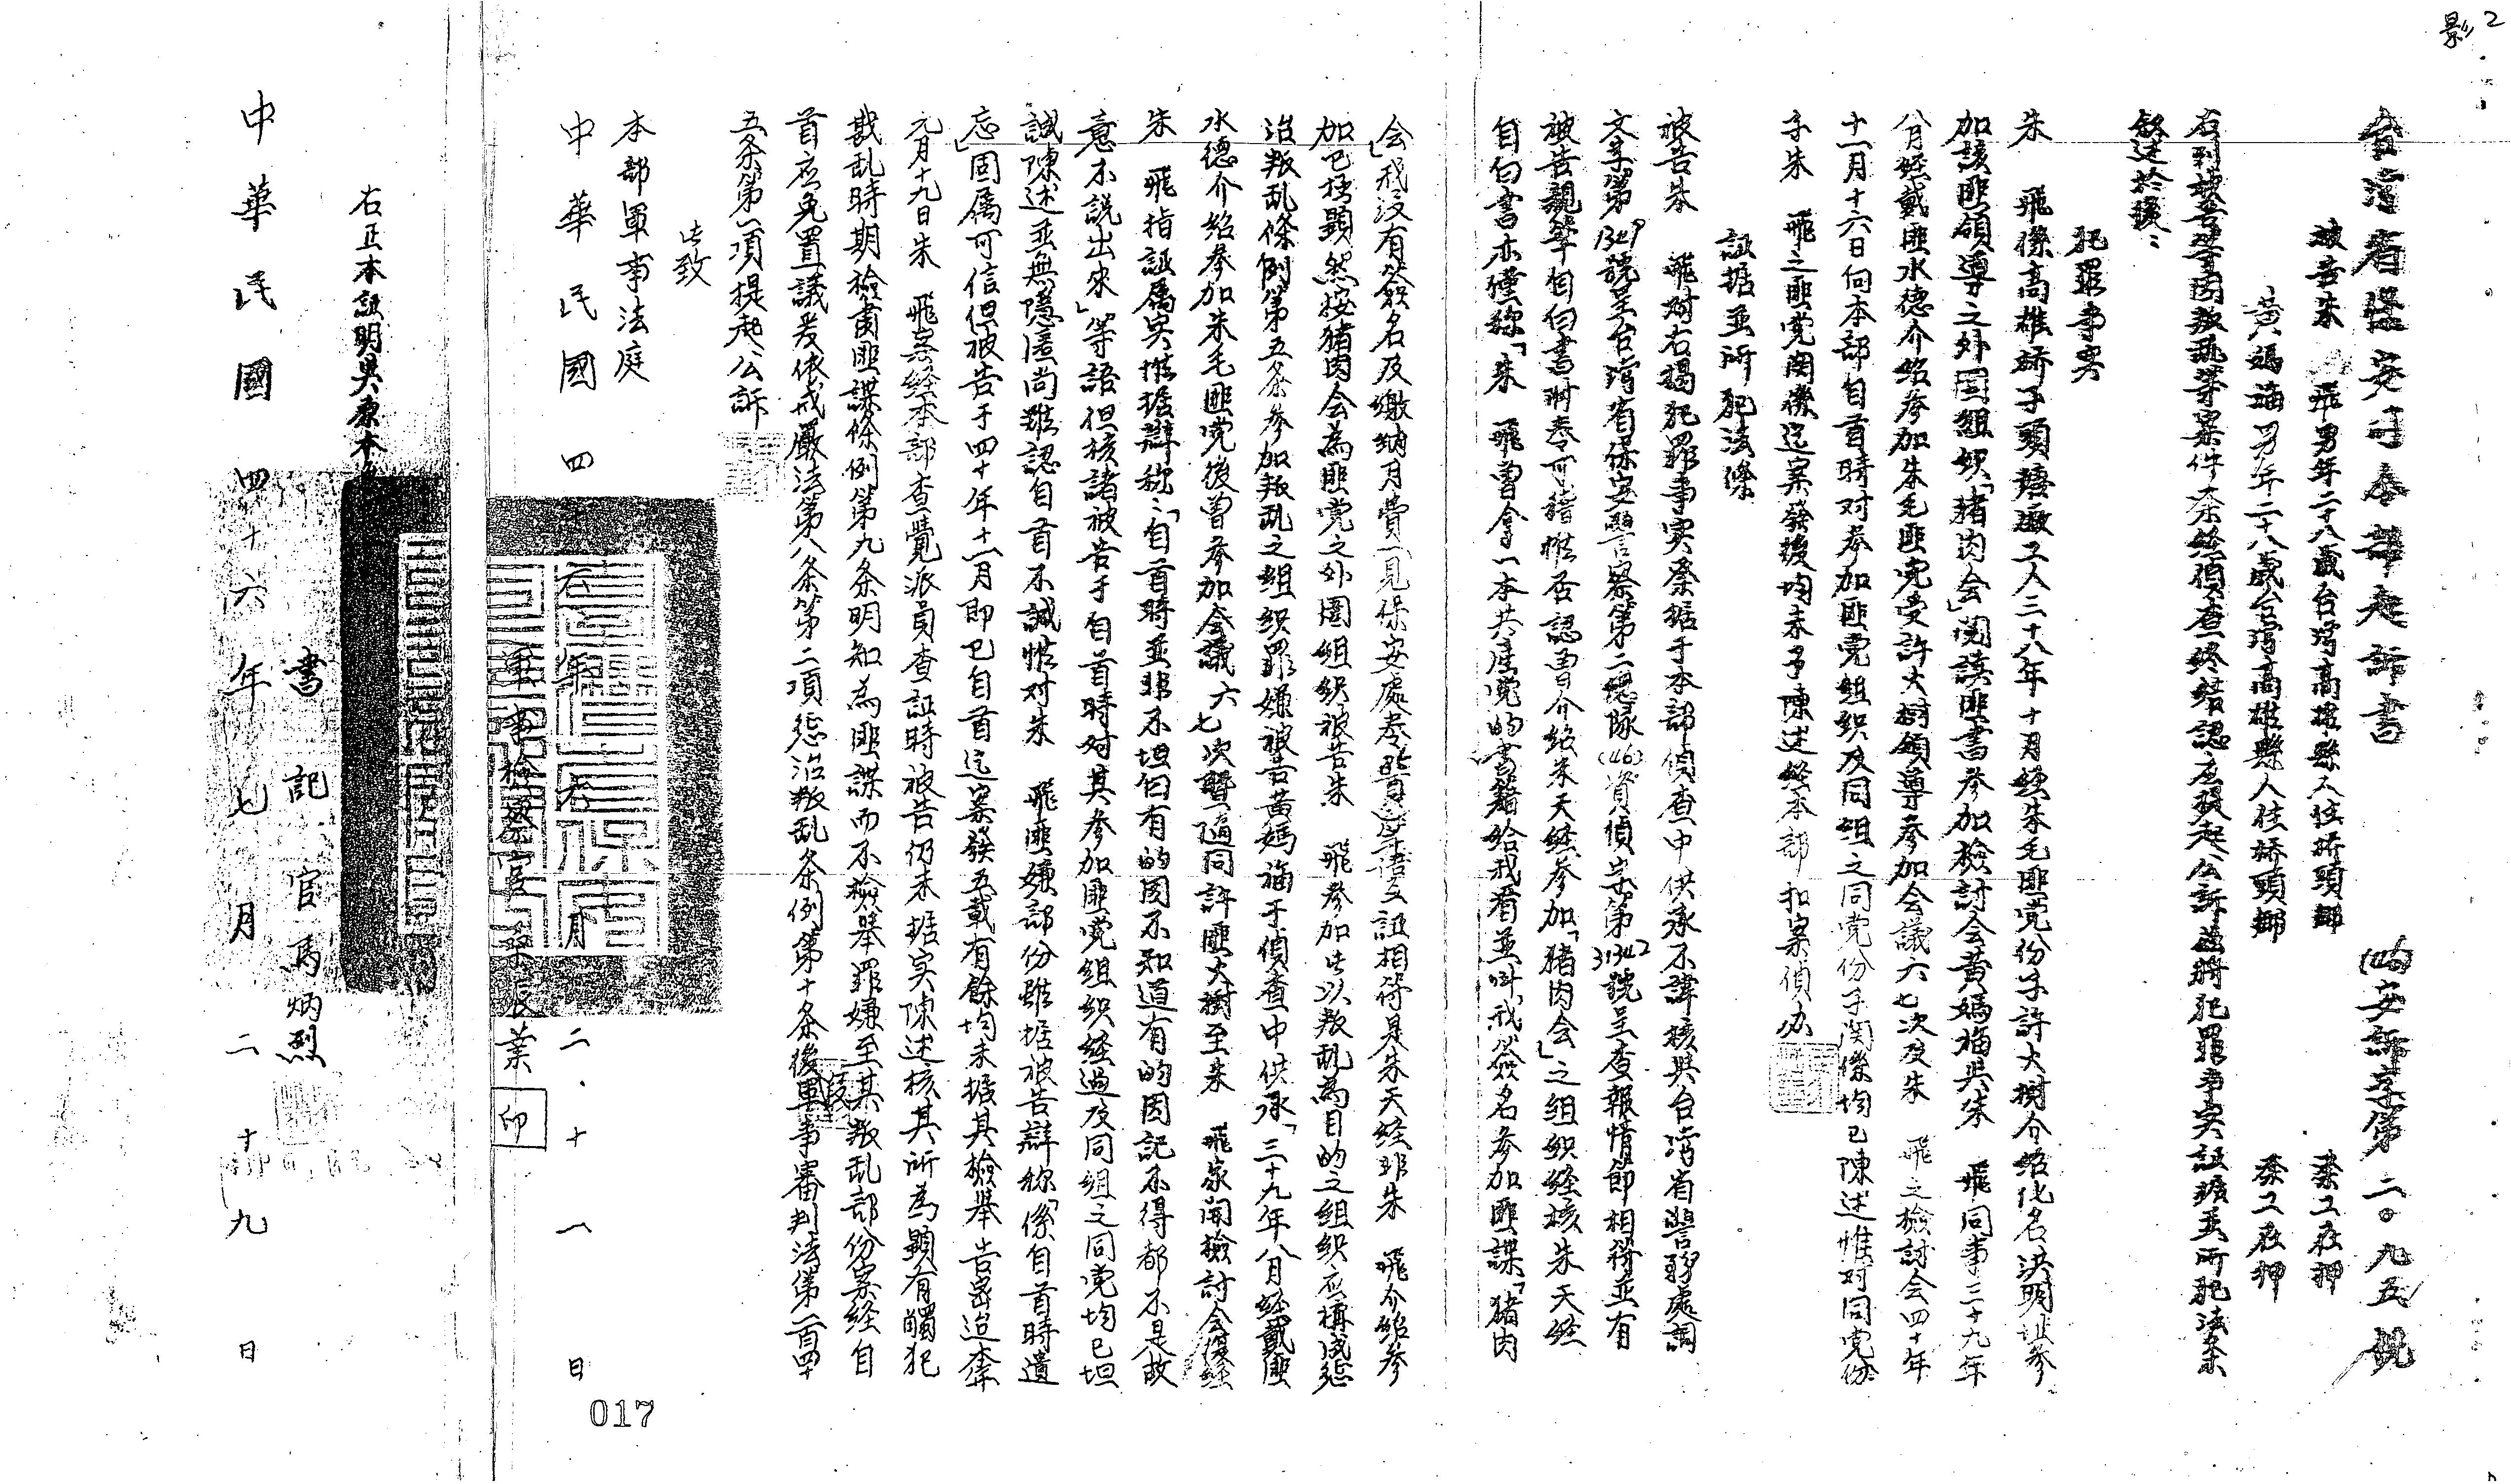 影 2
台湾省保安司令部起訴書 (46)安訴字第二〇九五號
被告朱 飛男年二十八歲台灣高雄縣人住橋頭鄉 業工在押
黃媽福男年二十八歲台灣高雄縣人住橋頭鄉 業工在押
右列被告等因叛乱等案件业經偵查終結認应提起公訴茲將犯罪事实証據並所犯法条
敘述於後：
犯罪事实
朱 飛係高雄橋子頭糖廠工人三十八年十月經朱毛匪党份子許大樹介紹化名洪明並参
加該匪領導之外围組織「猪肉会」閱讀匪書参加檢討会黃媽福與朱 飛同事三十九年
八月經戴匪水德介紹参加朱毛匪党受許大樹領導参加会議六七次及朱 飛之檢討会四十年
十一月十六日向本部自首時对参加匪党組织及同組之同党份子関係均已陳述惟对同党份
子朱 飛之匪党関係迄案發後均未予陳述経本部扣案偵办
証據並所犯法條
被告朱 飛对右揭犯罪事实業据于本部偵查中供承不諱核與台湾省警務處調
文孝第1329號呈台湾省保安警察第二總隊(46)資偵字第31342號呈查報情節相符並有
被告親筆自白書附卷可稽惟否認曾介紹朱天經参加「猪肉会」之組织経核朱天经
自白書亦僅称「朱 飛曾拿一本共産党的書籍給我看並叫我签名参加匪諜「猪肉
会」我没有签名及繳納月費」見保安處卷皆等語互証相符是朱天經非朱 飛介紹参
加已极顕然按猪肉会為匪党之外圍組织被告朱 飛参加此以叛乱為目的之組织应構成惩
治叛乱條例第五条参加叛乱之組织罪嫌被告黃媽福于偵查中供承「三十九年八月經戴匪
水德介紹参加朱毛匪党後曾参加会議六七次暨隨同許匪大樹至朱 飛家開檢討会」復経
朱 飛指証属实惟据辯称：「自首時並非不坦白有的因不知道有的因記不得都不是故
意不說出來」等語但核諸被告于自首時对其参加匪党組织経過及同組之同党均已坦
誠陳述並無隱匿尚难認自首不誠惟对朱 飛匪嫌部份雖据被告辯称「係自首時遺
忘」固属可信但被告于四十年十一月即已自首迄案發五載有餘均未據其檢舉告密迨本年
元月十九日朱 飛案経本部查覺派員查証時被告仍未据实陳述核其所為顯有觸犯
戡乱時期檢肅匪諜條例第九条明知為匪諜而不檢舉罪嫌至其叛乱部份案経自
首应免置議爰依戒嚴法第八条第二項惩治叛乱条例第十条後段軍事審判法第一百四十
五条第一項提起公訴
此致
本部軍事法庭
中華民國四十六年六月二十一日
軍事檢察官 葉 印
右正本証明與原本
書記官馬炳烈
中華民國四十六年七月二十九日
017